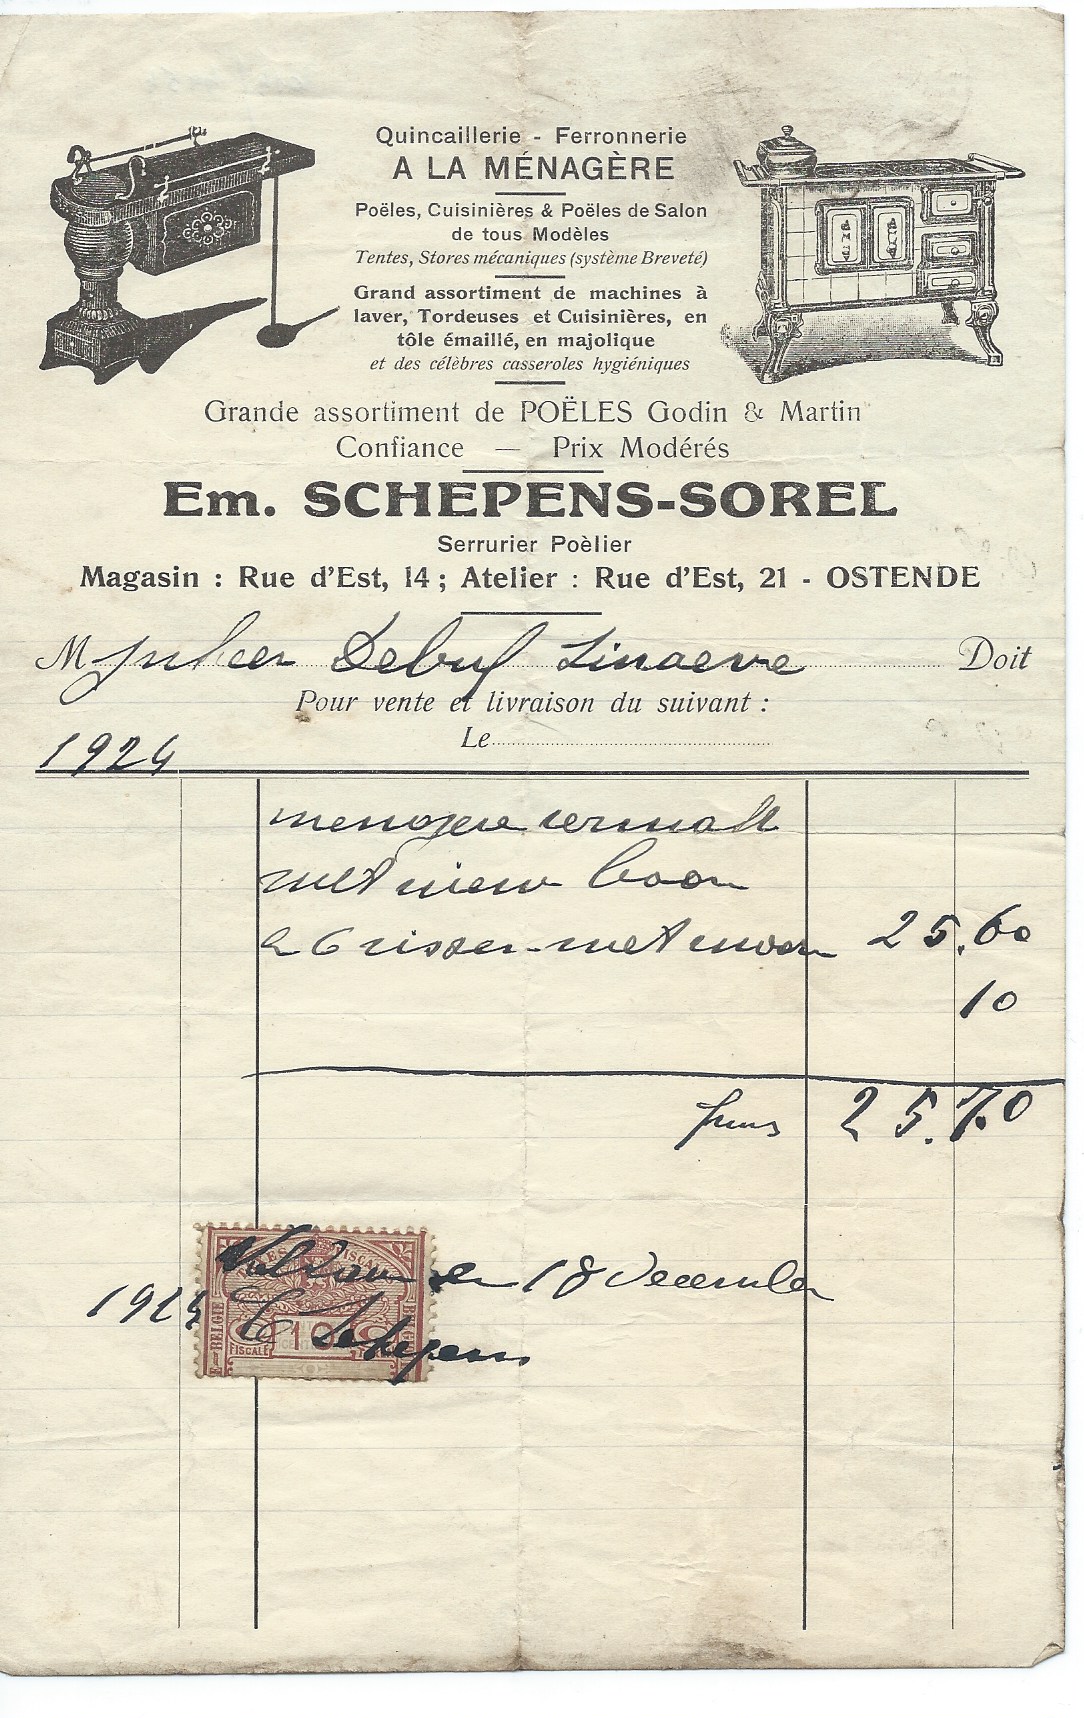 Quincaillerie - Ferronnerie
A LA MÉNAGÈRE
Poëles, Cuisinières & Poëles de Salon
de tous Modèles
Tentes, Stores mécaniques (système Breveté)
Grand assortiment de machines à
laver, Tordeuses et Cuisinières, en
tôle émaillé, en majolique
et des célèbres casseroles hygiéniques
Grande assortiment de POËLES Godin & Martin
Confiance — Prix Modérés
Em. SCHEPENS-SOREL
Serrurier Poèlier
Magasin : Rue d'Est, 14 ; Atelier : Rue d'Est, 21 - OSTENDE
M Doit
Pour vente et livraison du suivant :
Le
1924
met
met 25.60
10
25.70
Voldaan den 18 December
1924 Schepens
BELGIE
FISCALE
10